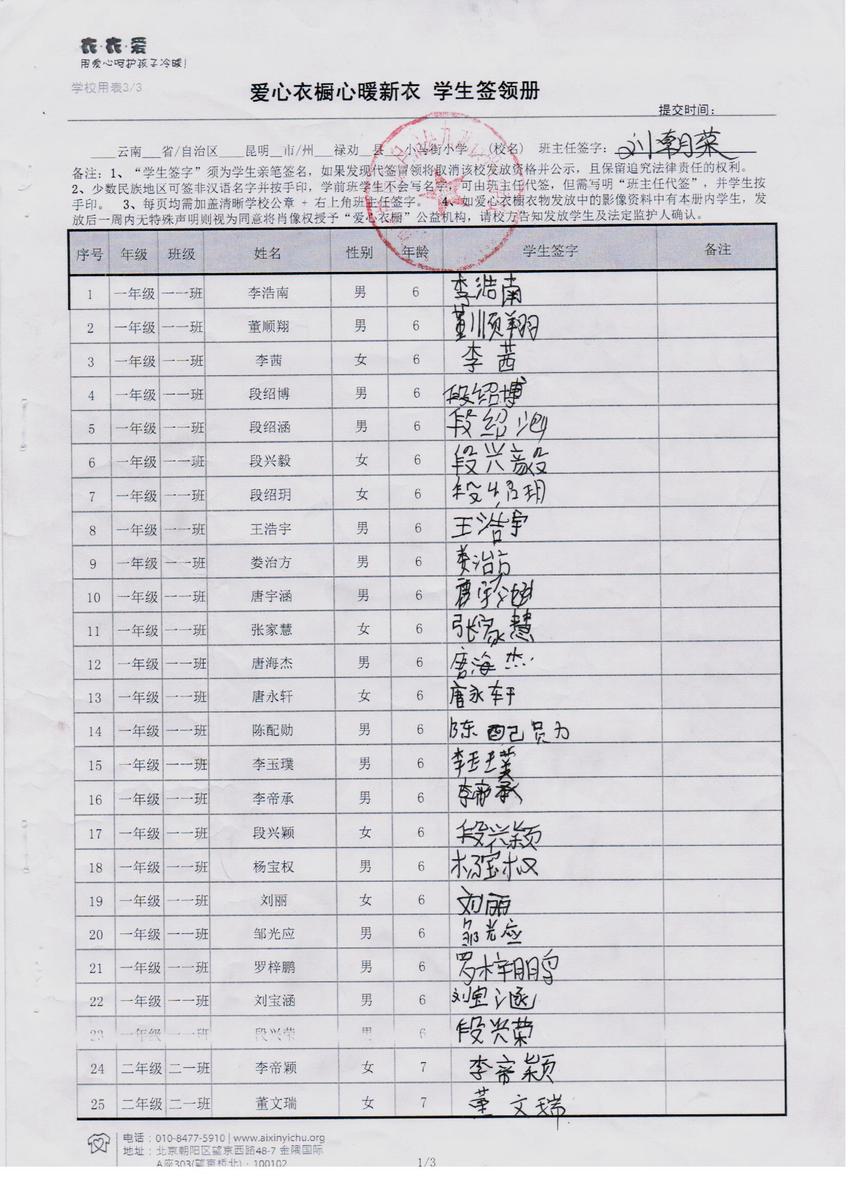 衣·衣·爱
用爱心呵护孩子冷暖!
学校用表3/3
爱心衣橱心暖新衣 学生签领册
提交时间:
云南 省/自治区 昆明 市/州 禄劝 县 小学 (校名) 班主任签字: 刘朝菜
备注: 1、“学生签字”须为学生亲笔签名,如果发现代签冒领将取消该校发放资格并公示,且保留追究法律责任的权利。
2、少数民族地区可签非汉语名字并按手印,学前班学生不会写名字,可由班主任代签,但需写明“班主任代签”,并学生按
手印。 3、每页均需加盖清晰学校公章 + 右上角班主任签字。 4、如爱心衣橱衣物发放中的影像资料中有本册内学生,发
放后一周内无特殊声明则视为同意将肖像权授予“爱心衣橱”公益机构,请校方告知发放学生及法定监护人确认。
序号 年级 班级 姓名 性别 年龄 学生签字 备注
1 一年级 一一班 李浩南 男 6 李浩南
2 一年级 一一班 董顺翔 男 6 董顺翔
3 一年级 一一班 李茜 女 6 李茜
4 一年级 一一班 段绍博 男 6 段绍博
5 一年级 一一班 段绍涵 男 6 段绍涵
6 一年级 一一班 段兴毅 女 6 段兴毅
7 一年级 一一班 段绍玥 女 6 段绍玥
8 一年级 一一班 王浩宇 男 6 王浩宇
9 一年级 一一班 娄治方 男 6 娄治方
10 一年级 一一班 唐宇涵 男 6 唐宇涵
11 一年级 一一班 张家慧 女 6 张家慧
12 一年级 一一班 唐海杰 男 6 唐海杰
13 一年级 一一班 唐永轩 女 6 唐永轩
14 一年级 一一班 陈配勋 男 6 陈配勋
15 一年级 一一班 李玉璞 男 6 李玉璞
16 一年级 一一班 李帝承 男 6 李帝承
17 一年级 一一班 段兴颖 女 6 段兴颖
18 一年级 一一班 杨宝权 男 6 杨宝权
19 一年级 一一班 刘丽 女 6 刘丽
20 一年级 一一班 邹光应 男 6 邹光应
21 一年级 一一班 罗梓鹏 男 6 罗梓鹏
22 一年级 一一班 刘宝涵 男 6 刘宝涵
23 一年级 一一班 段兴荣 男 6 段兴荣
24 二年级 二一班 李帝颖 女 7 李帝颖
25 二年级 二一班 董文瑞 女 7 董文瑞
电话:010-8477-5910 | www.aixinyichu.org
地址:北京朝阳区望京西路48-7 金隅国际
A座303(望京桥北)·100102
1/3